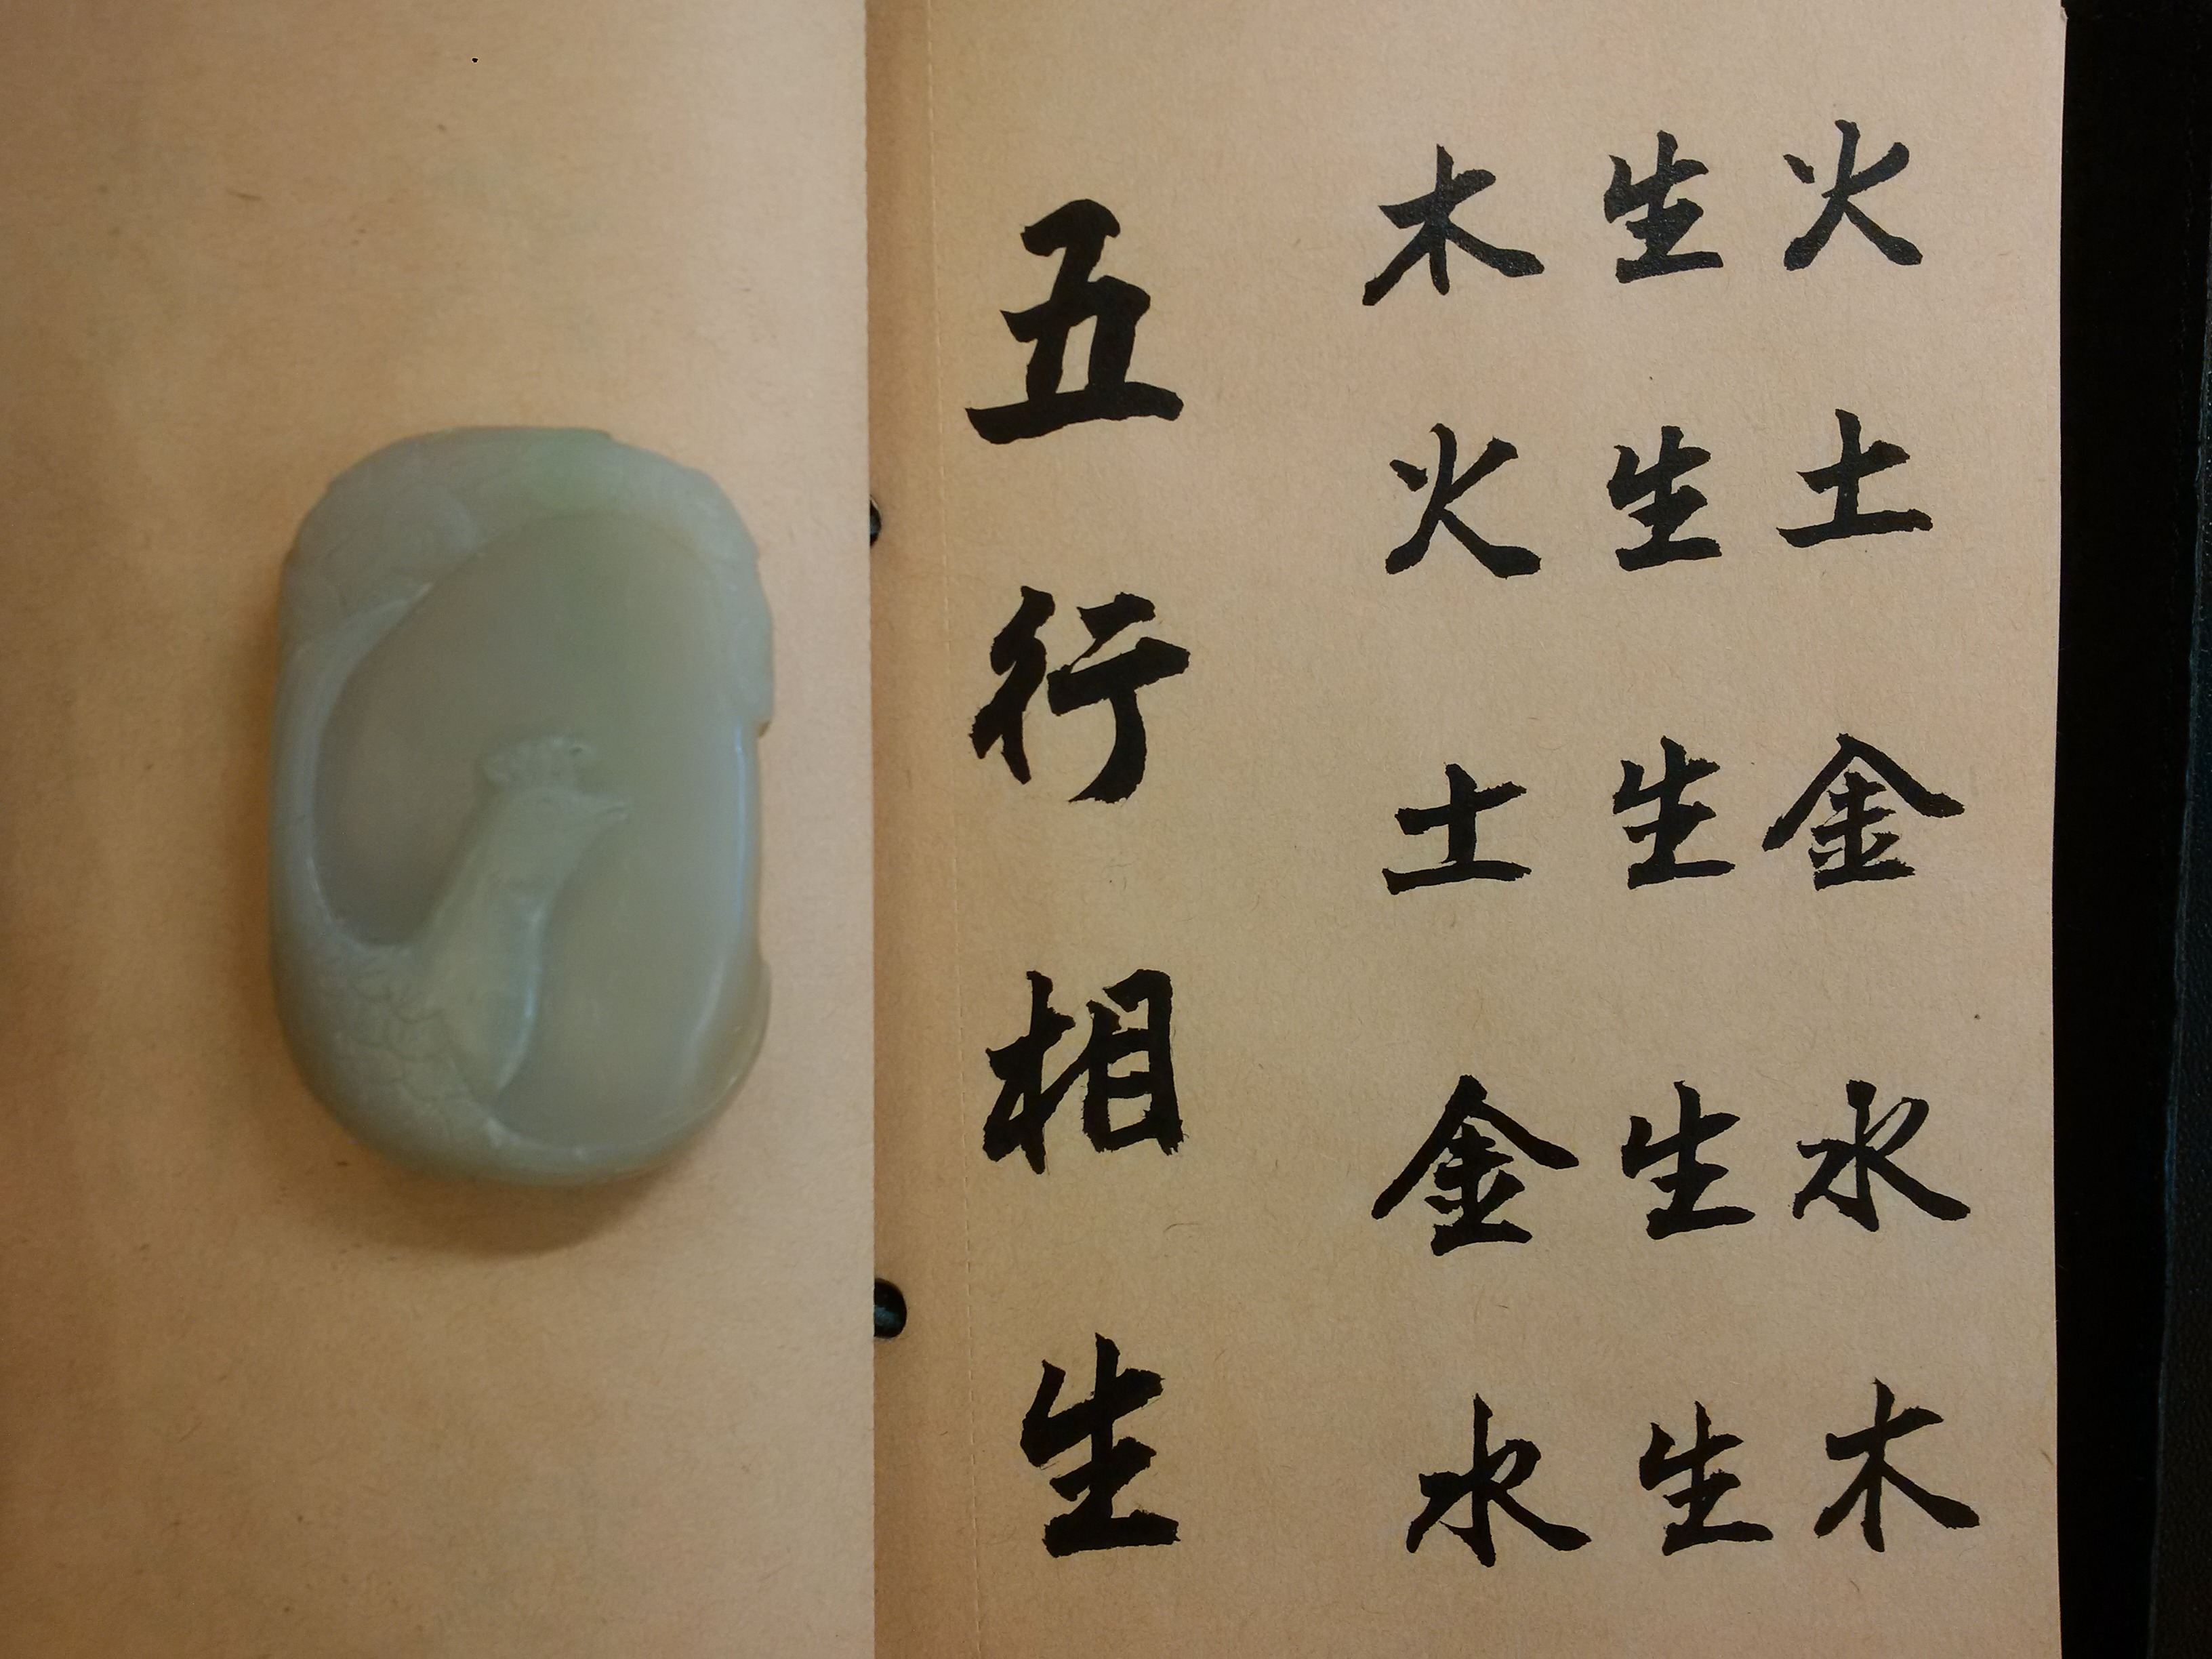 五行相生
木生火
火生土
土生金
金生水
水生木